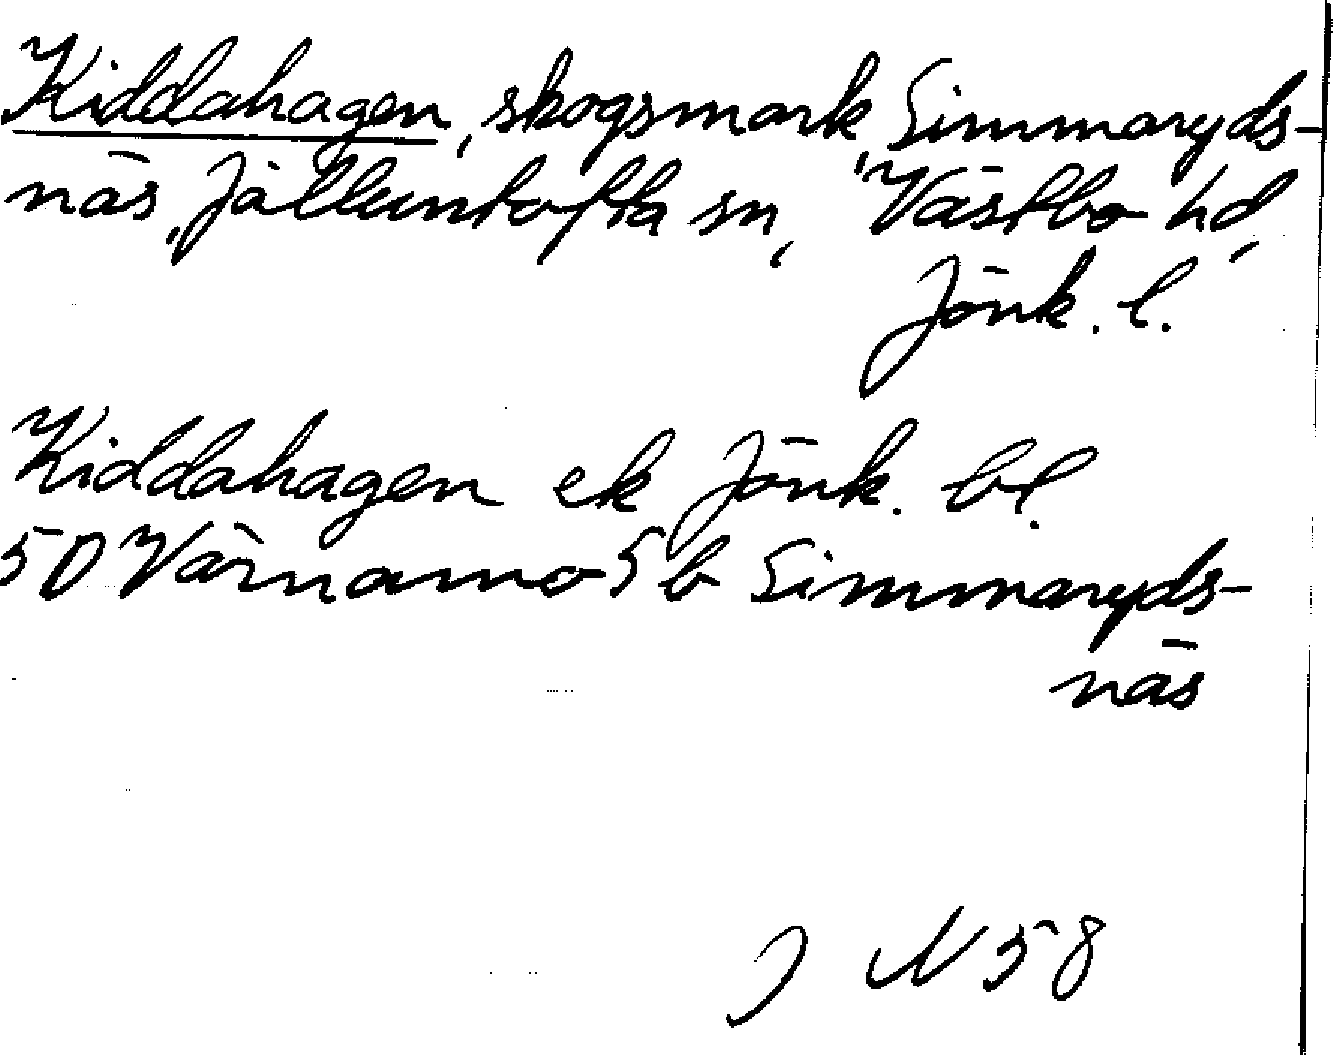 Kiddahagen, skogsmark, Simmaryds-
näs, Jälluntofta sn, Västbo hd,
Jönk. l.
Kiddahagen ek Jönk. bl.
5D Värnamo 5b Simmaryds-
näs
J N 58